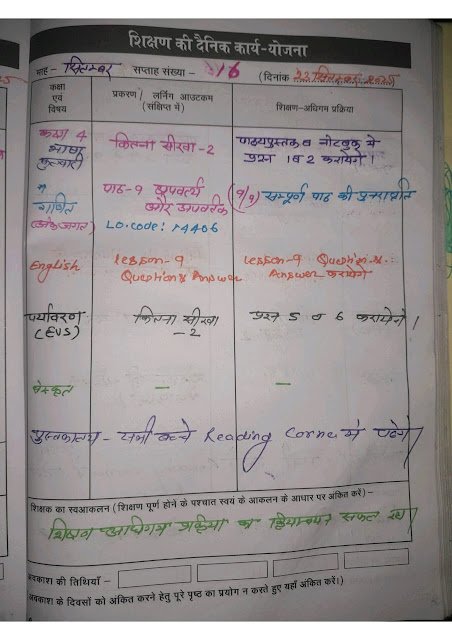 शिक्षण की दैनिक कार्य-योजना
माह - सितम्बर सप्ताह संख्या - 16 (दिनांक 22 सितम्बर 2025
कक्षा एवं विषय
प्रकरण/ लर्निंग आउटकम (संक्षिप्त में)
शिक्षण-अधिगम प्रक्रिया
कक्षा 4
भाषा
फुलवारी
कितना सीखा - 2
पाठ्यपुस्तक व नोटबुक में
प्रश्न 1 व 2 करायेंगे।
गणित
(अंकजगत)
पाठ-9 अपवर्त्य
और अपवर्तक
LO.code:
सम्पूर्ण पाठ की पुनरावृत्ति
English
lesson-9
Question & Answer
lesson-9 Question &
Answer करायेंगे
पर्यावरण
(EVS)
कितना सीखा
-2
प्रश्न 5 व 6 करायेंगे।
संस्कृत
–
–
पुस्तकालय - सभी बच्चे Reading Corner में पढ़ेंगे
शिक्षक का स्वआकलन (शिक्षण पूर्ण होने के पश्चात स्वयं के आकलन के आधार पर अंकित करें) -
शिक्षण अधिगम प्रक्रिया का क्रियान्वयन सफल रहा
अवकाश की तिथियाँ -
अवकाश के दिवसों को अंकित करने हेतु पूरे पृष्ठ का प्रयोग न करते हुए यहाँ अंकित करें।)